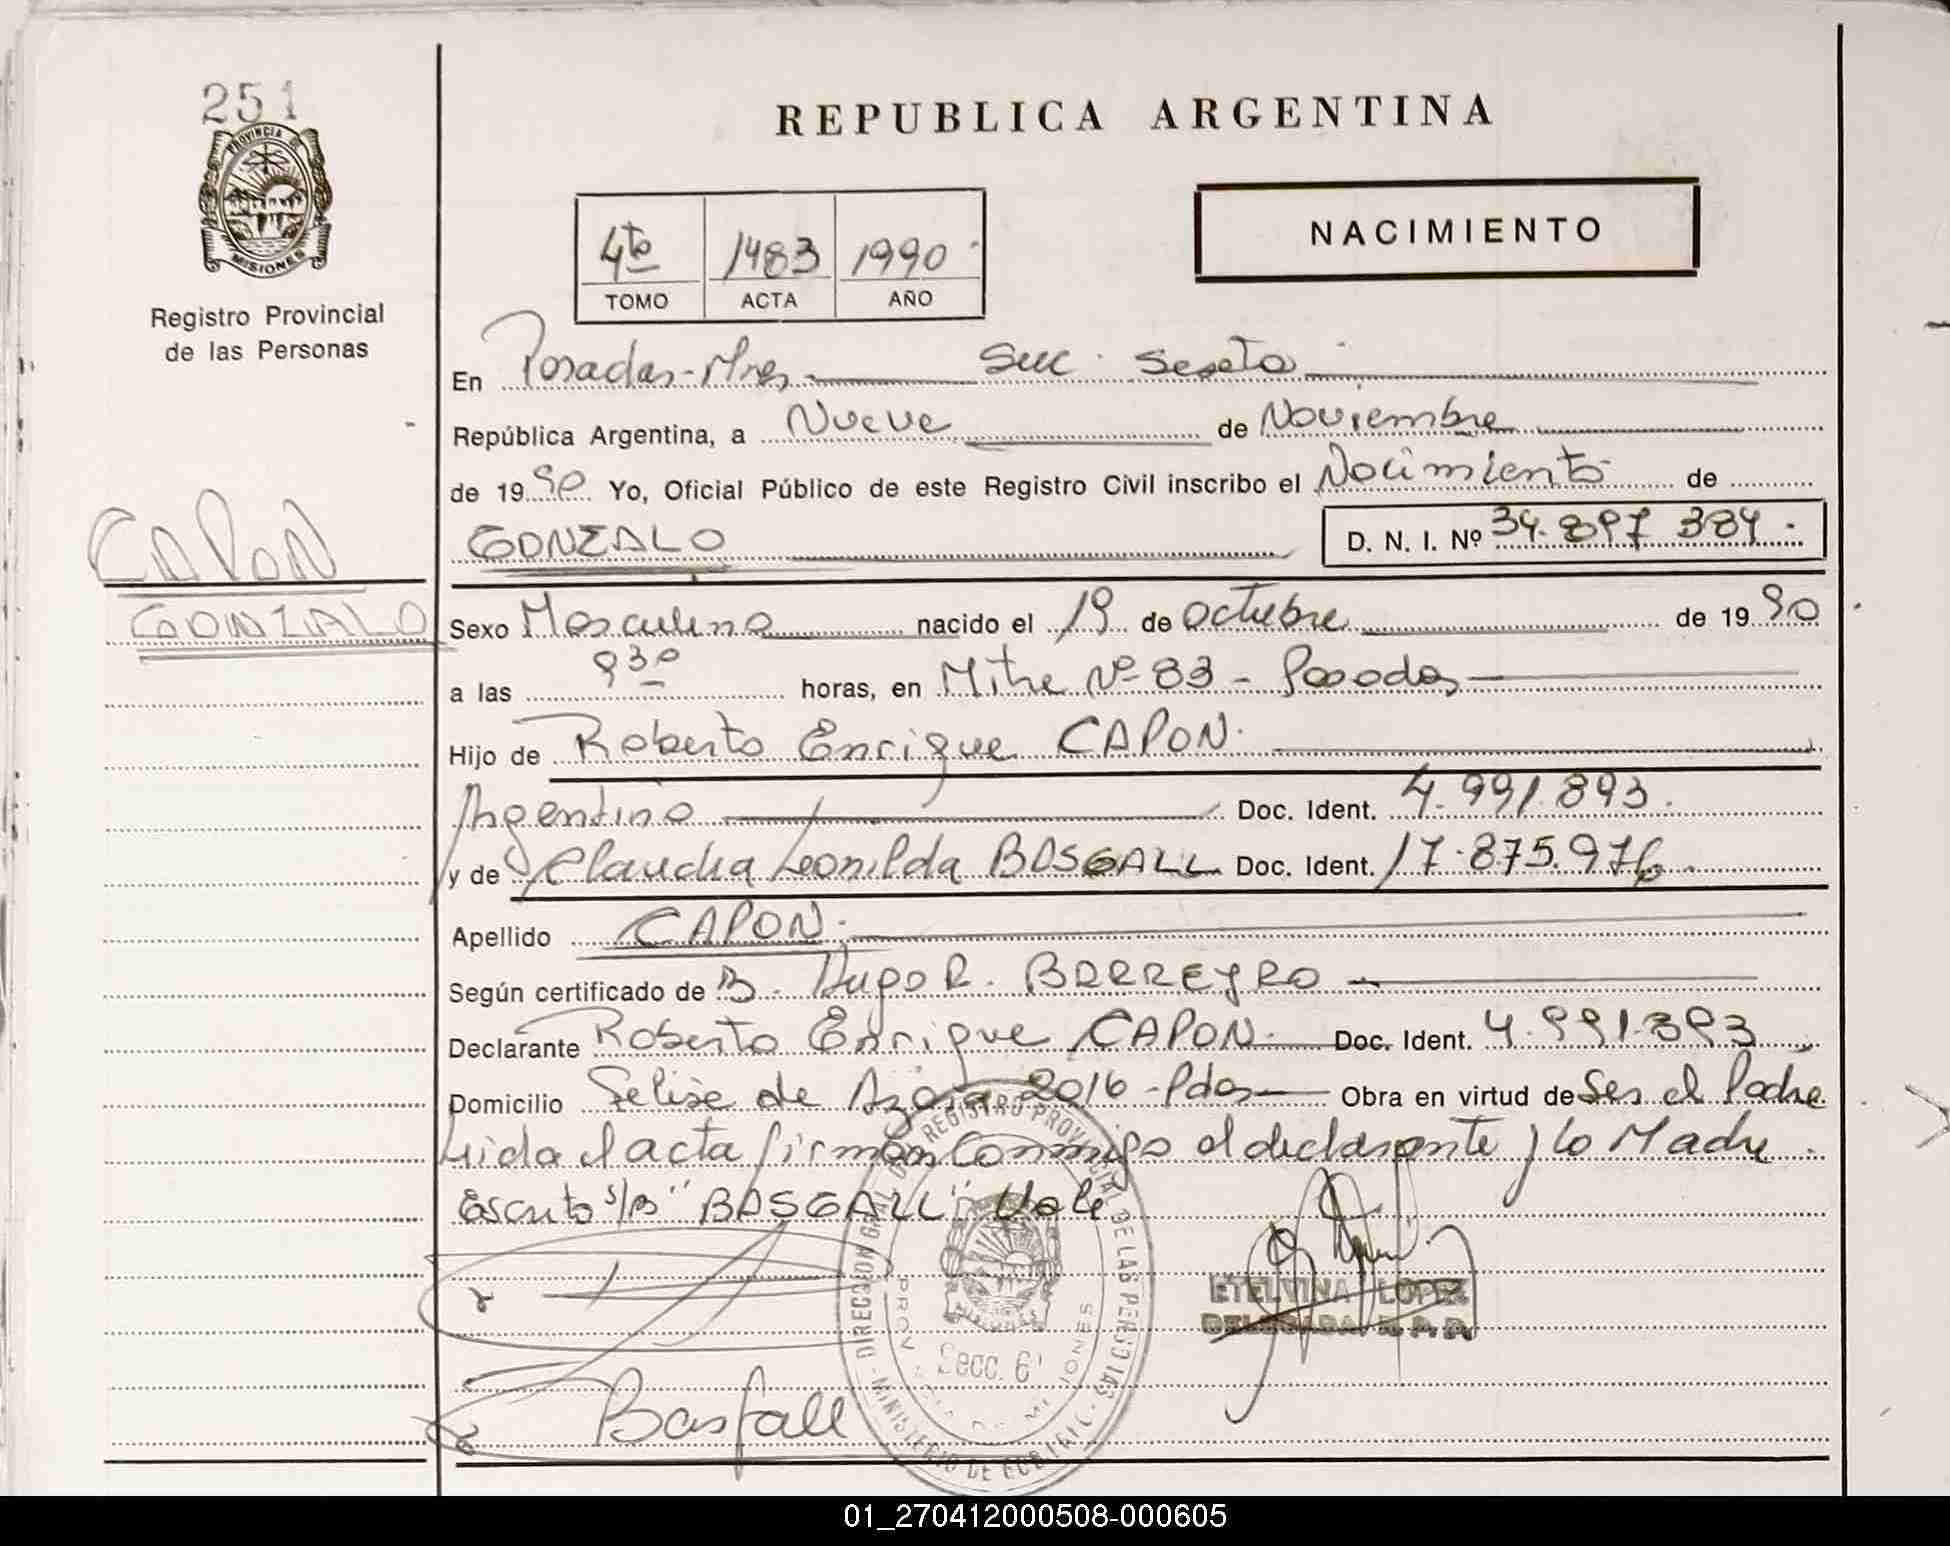 251
PROVINCIA
MISIONES
Registro Provincial
de las Personas
REPUBLICA ARGENTINA
NACIMIENTO
4to 1483 1990
TOMO ACTA AÑO
En Posadas-Mnes Secc. Sexta
República Argentina, a Nueve de Noviembre
de 1990 Yo, Oficial Público de este Registro Civil inscribo el Nacimiento de
GONZALO D. N. I. Nº 34.897 384.
CAPON
GONZALO
Sexo Masculino nacido el 19 de Octubre de 1990
a las 930 horas, en Mitre Nº 83 - Posadas
Hijo de Roberto Enrique CAPON.
Argentino Doc. Ident. 4.991.893.
y de Claudia Leonilda BASGALL Doc. Ident. 17.875.976.
Apellido CAPON.
Según certificado de Hugo R. BARREYRO
Declarante Roberto Enrique CAPON. Doc. Ident. 4.991.893
Domicilio Felix de Azara 2016 - Pdas Obra en virtud de Ser el Padre
Leida el acta firman conmigo el declarante y la Madre.
Escrito s/B "BASGALL" Vale
Basgall
DIRECCION GRAL. DEL REGISTRO PROVINCIAL DE LAS PERSONAS
MINISTERIO DE GOB.
Secc. 6ª
ETELVINA LOPEZ
DELEGADA R.P.P.
01_270412000508-000605